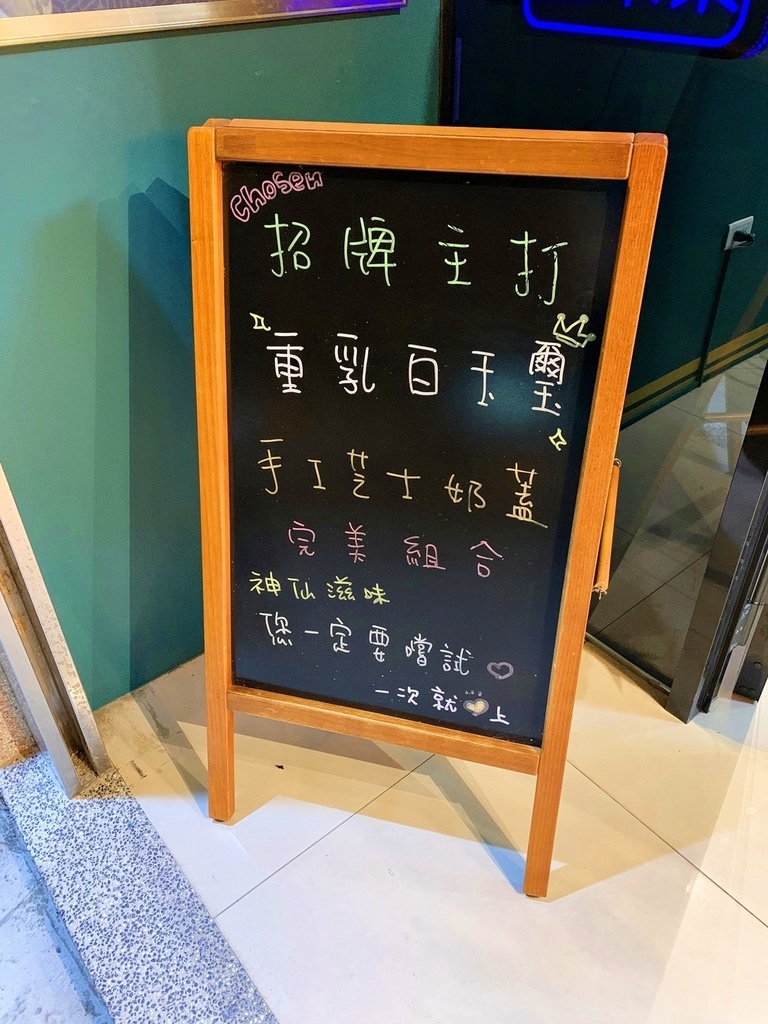 Chosen
招牌主打
重乳白玉璽
手工芝士奶蓋
完美組合
神仙滋味
您一定要嚐試
一次就上